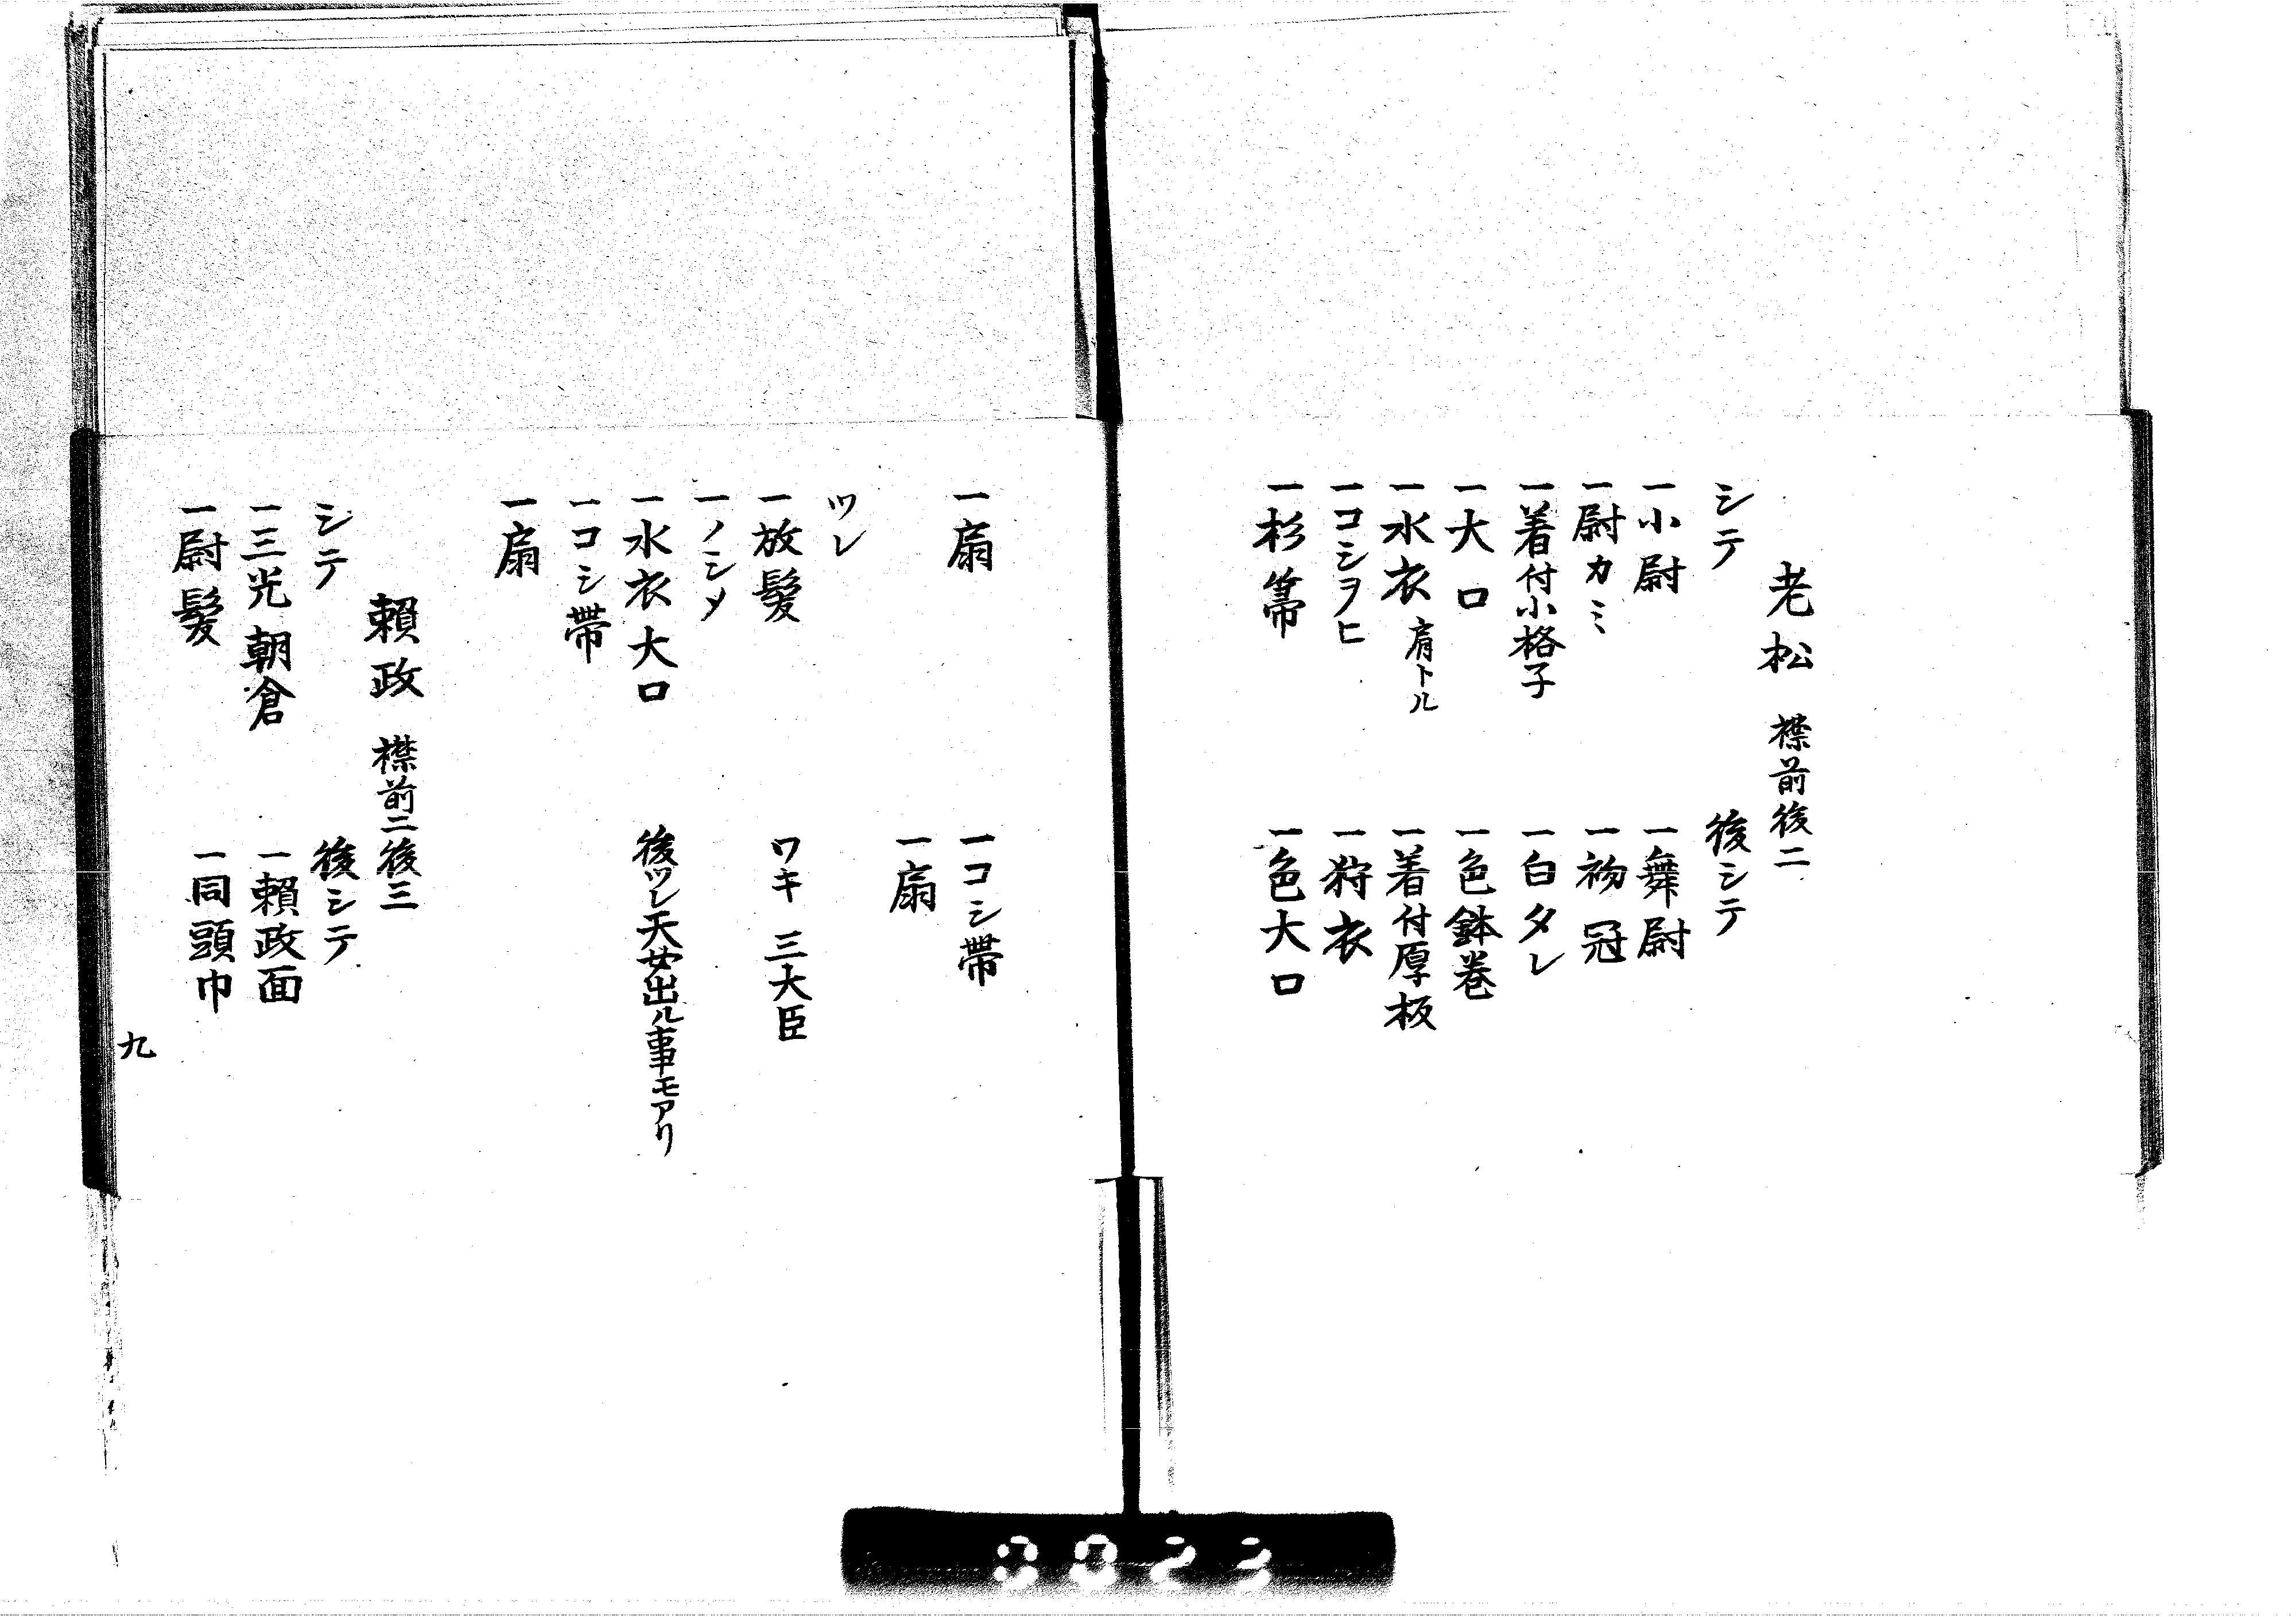 老松　襟前後二
シテ　後シテ
一小尉　一舞尉
一尉カミ　一初冠
一着付小格子　一白タレ
一大口　一色鉢巻
一水衣肩トル　一着付厚板
一コシヲヒ　一狩衣
一杉箒　一色大口
一扇　一コシ帯
一扇
ツレ
一放髪　ワキ　三大臣
一ノシメ
一水衣大口　後ツレ天女出ル事モアリ
一コシ帯
一扇
賴政　襟前二後三
シテ　後シテ
一三光朝倉　一賴政面
一尉髪　一同頭巾
九